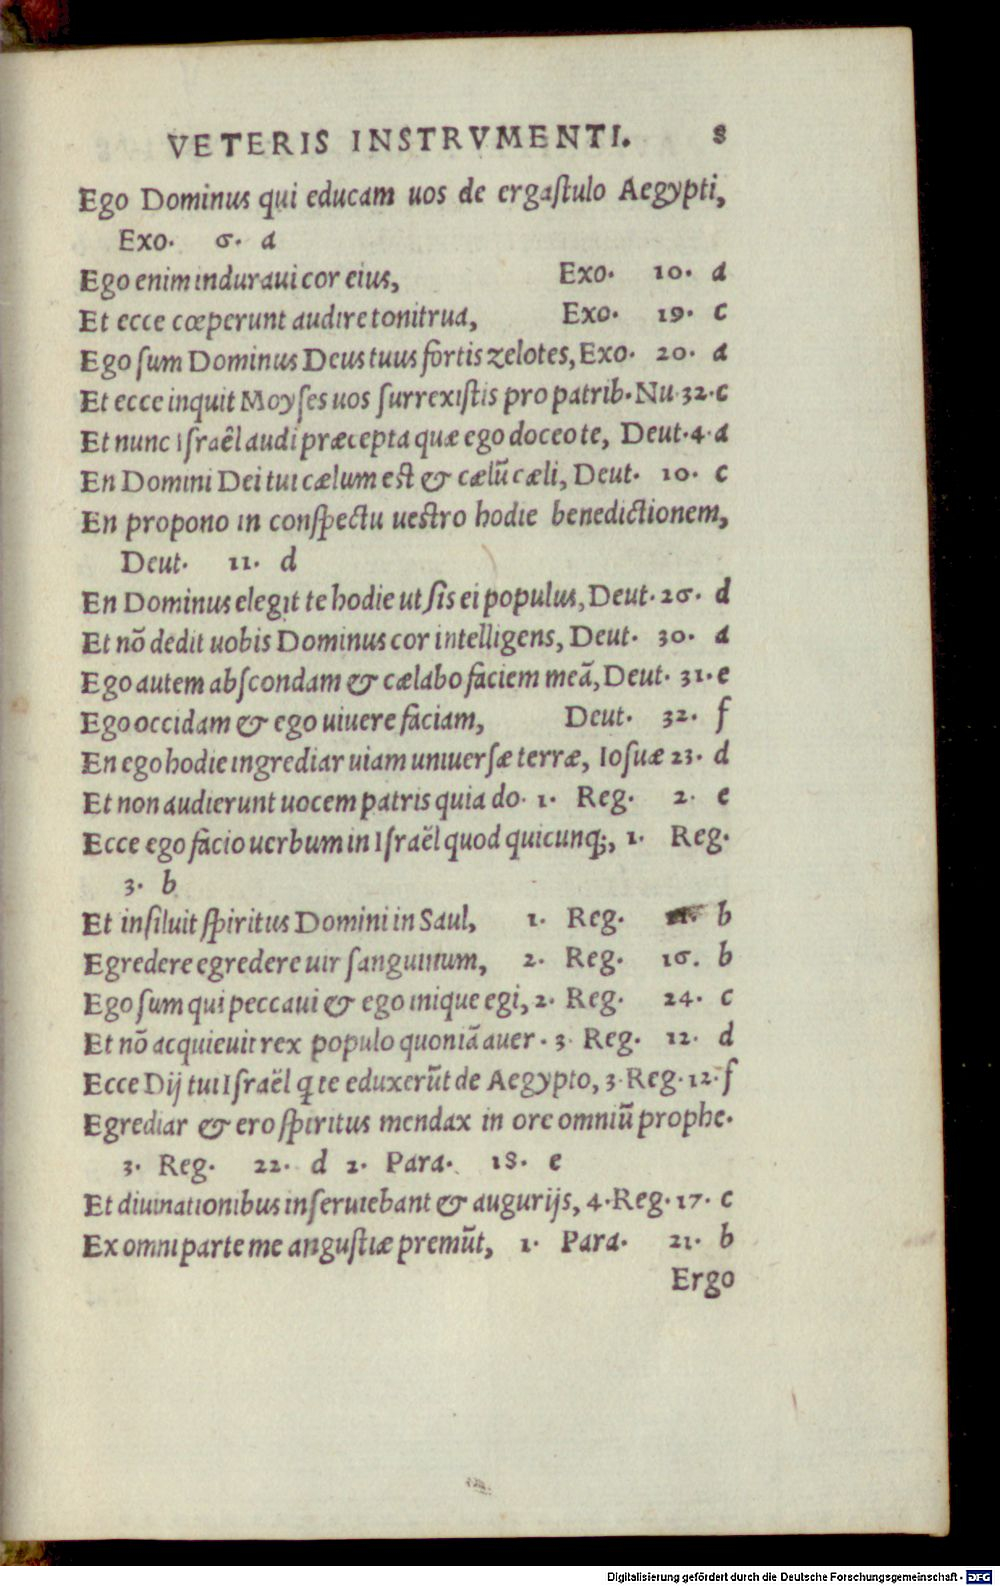 VETERIS INSTRVMENTI. 8
Ego Dominus qui educam uos de ergastulo Aegypti,
Exo. 6. a
Ego enim induraui cor eius, Exo. 10. a
Et ecce cœperunt audire tonitrua, Exo. 19. c
Ego sum Dominus Deus tuus fortis zelotes, Exo. 20. a
Et ecce inquit Moyses uos surrexistis pro patrib. Nu. 32. c
Et nunc Israêl audi præcepta quæ ego doceo te, Deut. 4. a
En Domini Dei tui cælum est & cælū cæli, Deut. 10. c
En propono in conspectu uestro hodie benedictionem,
Deut. 11. d
En Dominus elegit te hodie ut sis ei populus, Deut. 26. d
Et nō dedit uobis Dominus cor intelligens, Deut. 30. a
Ego autem abscondam & cælabo faciem meā, Deut. 31. e
Ego occidam & ego uiuere faciam, Deut. 32. f
En ego hodie ingrediar uiam uniuersæ terræ, Iosuæ 23. d
Et non audierunt uocem patris quia do. 1. Reg. 2. e
Ecce ego facio uerbum in Israël quod quicunq;, 1. Reg.
3. b
Et insiluit spiritus Domini in Saul, 1. Reg. 11. b
Egredere egredere uir sanguinum, 2. Reg. 16. b
Ego sum qui peccaui & ego inique egi, 2. Reg. 24. c
Et nō acquieuit rex populo quoniā auer. 3. Reg. 12. d
Ecce Dij tui Israël q te eduxerūt de Aegypto, 3. Reg. 12. f
Egrediar & ero spiritus mendax in ore omniū prophe.
3. Reg. 22. d 2. Para. 18. e
Et diuinationibus inseruiebant & augurijs, 4. Reg. 17. c
Ex omni parte me angustiæ premūt, 1. Para. 21. b
Ergo
Digitalisierung gefördert durch die Deutsche Forschungsgemeinschaft - DFG